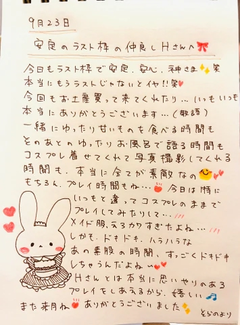 9月23日
安定のラスト枠の仲良しHさんへ
今日もラスト枠で安定、安心、神さま笑
本当にもうラストじゃないとイヤ!!笑
今回もお土産買って来てくれたり...いつもいつも
本当にありがとうございます...(敬語)
一緒にゆったり甘いものを食べる時間も
そのあとのゆったりお風呂で語る時間も
コスプレ着せてくれて写真撮影してくれる
時間も、本当に全てが素敵なの
もちろん、プレイ時間もね...今日は特に
いつもと違って、コスプレのままで
プレイしてみたりして...
メイド服、えっろかすぎたよね...
しかも、ドキドキ、ハラハラな
あの素股の時間、すごくドキドキ
しちゃうんだよね
Hさんとは本当に思いやりのある
プレイをしあえるから、嬉しい
また来月ね ありがとうございました
そらのより